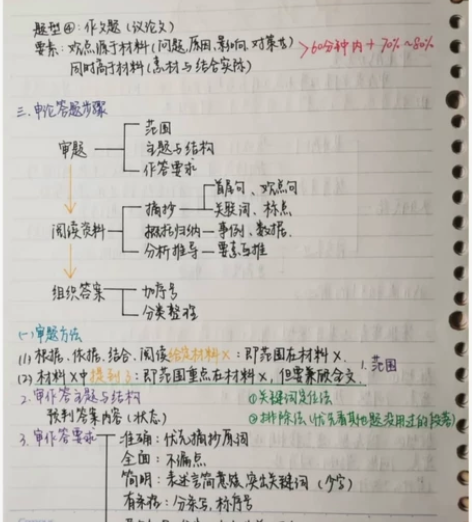 题型④:作文题(议论文)
要素:观点源于材料(问题、原因、影响、对策等) >60分钟内+70%~80%
同时高于材料(素材与结合实际)
三.申论答题步骤
审题 范围
主题与结构
作答要求
阅读资料 摘抄 首尾句、观点句
关联词、标点
概括归纳 事例、数据.
分析推导 要素互推
组织答案 加序号
分类整理
(一)审题方法
(1)根据、依据、结合、阅读给定材料X:即范围在材料X. 1.范围
(2)材料X中提到了:即范围重点在材料X,但要兼顾全文.
2.审作答主题与结构 ①关键词定位法
预判答案内容(状态) ②排除法(优先看其他题没用过的段落)
3.审作答要求 准确:优先摘抄原词
全面:不漏点
简明:表述言简意赅,突出关键词(少字)
有条理:分条写,标序号